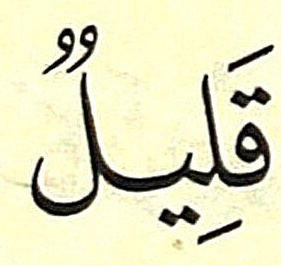 قَلِيلٌ